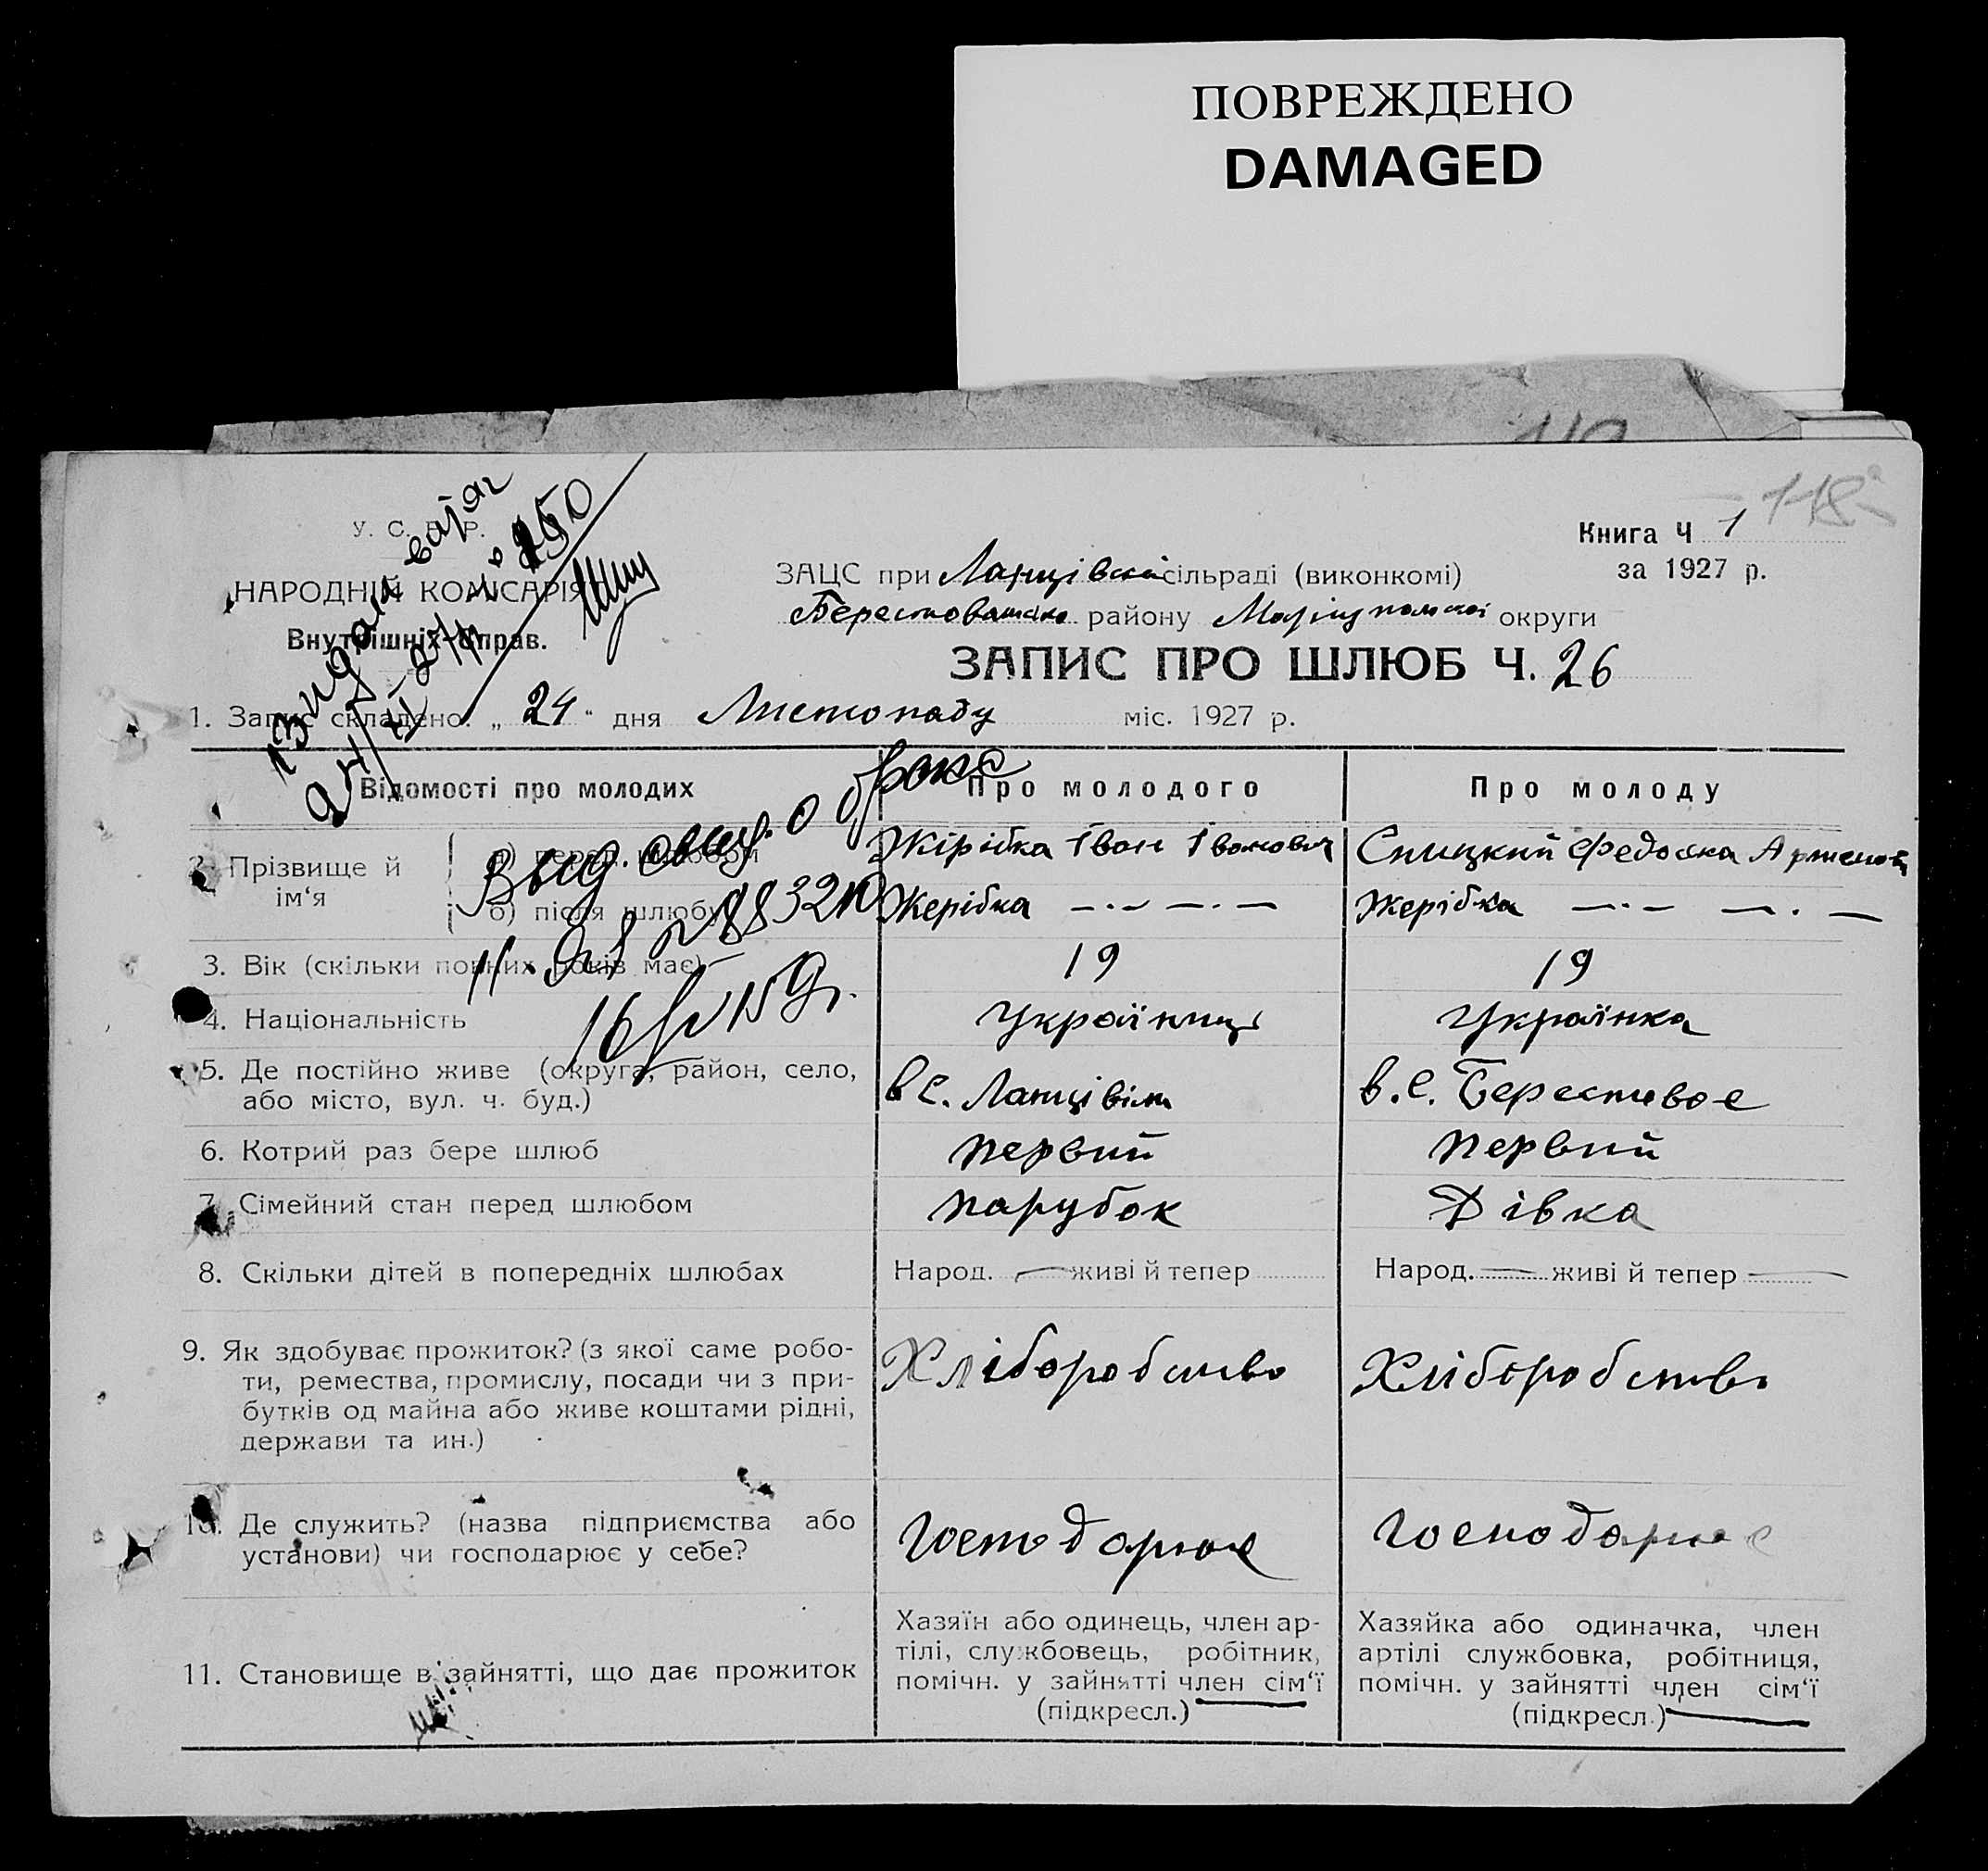 ПОВРЕЖДЕНО
DAMAGED
118
У. С. Р. Р.
НАРОДНІЙ КОМІСАРІЯТ
Внутрішніх Справ.
Книга Ч 1
за 1927 р.
ЗАЦС при сільраді (виконкомі)
району округи
ЗАПИС ПРО ШЛЮБ Ч. 26
1. Запис складено. „ 24 “ дня Листопаду міс. 1927 р.
видан витяг
24/XI
Выд. свид. о браке
16/IV 159г.
Відомості про молодих Про молодого Про молоду
2. Прізвище й ім‘я
а) перед шлюбом Жірібка Іван Іванович Спицкий Федоска
б) після шлюбу Жерібка —·— —·— Жерібка —·— —·—
3. Вік (скільки повних років має) 19 19
4. Національність Українець Українка
5. Де постійно живе (округа, район, село, в с. в. с. Берестовое
або місто, вул. ч. буд.)
6. Котрий раз бере шлюб первий первий
7. Сімейний стан перед шлюбом парубок Дівка
8. Скільки дітей в попередніх шлюбах Народ. — живі й тепер Народ. — живі й тепер —
9. Як здобуває прожиток? (з якої саме робо- Хліборобство Хліборобство
ти, ремества, промислу, посади чи з при-
бутків од майна або живе коштами рідні,
держави та ин.)
10. Де служить? (назва підприємства або господарює господарює
установи) чи господарює у себе?
11. Становище в зайнятті, що дає прожиток
Хазяїн або одинець, член ар-
тілі, службовець, робітник,
помічн. у зайнятті член сім‘ї
(підкресл.)
Хазяйка або одиначка, член
артілі службовка, робітниця,
помічн. у зайнятті член сім‘ї
(підкресл.)